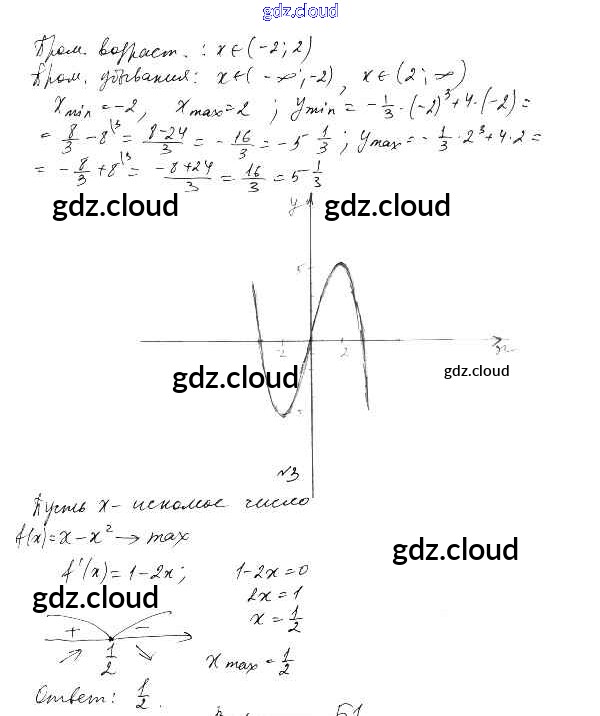 gdz.cloud
Пром. возраст. : x ∈ (-2; 2)
Пром. убывания: x ∈ (-∞; -2), x ∈ (2; ∞)
x min = -2, x max = 2 ; y min = -1/3 · (-2)³ + 4 · (-2) =
= 8/3 - 8\³ = 8-24/3 = -16/3 = -5 1/3 ; y max = -1/3 · 2³ + 4 · 2 =
= -8/3 + 8\³ = -8+24/3 = 16/3 = 5 1/3
gdz.cloud gdz.cloud
y
5
-2 2 x
gdz.cloud gdz.cloud
№3
Пусть x - искомое число
f(x) = x - x² → max
gdz.cloud
f'(x) = 1 - 2x; 1 - 2x = 0
gdz.cloud 2x = 1
x = 1/2
+ -
1/2 x max = 1/2
Ответ: 1/2.
51